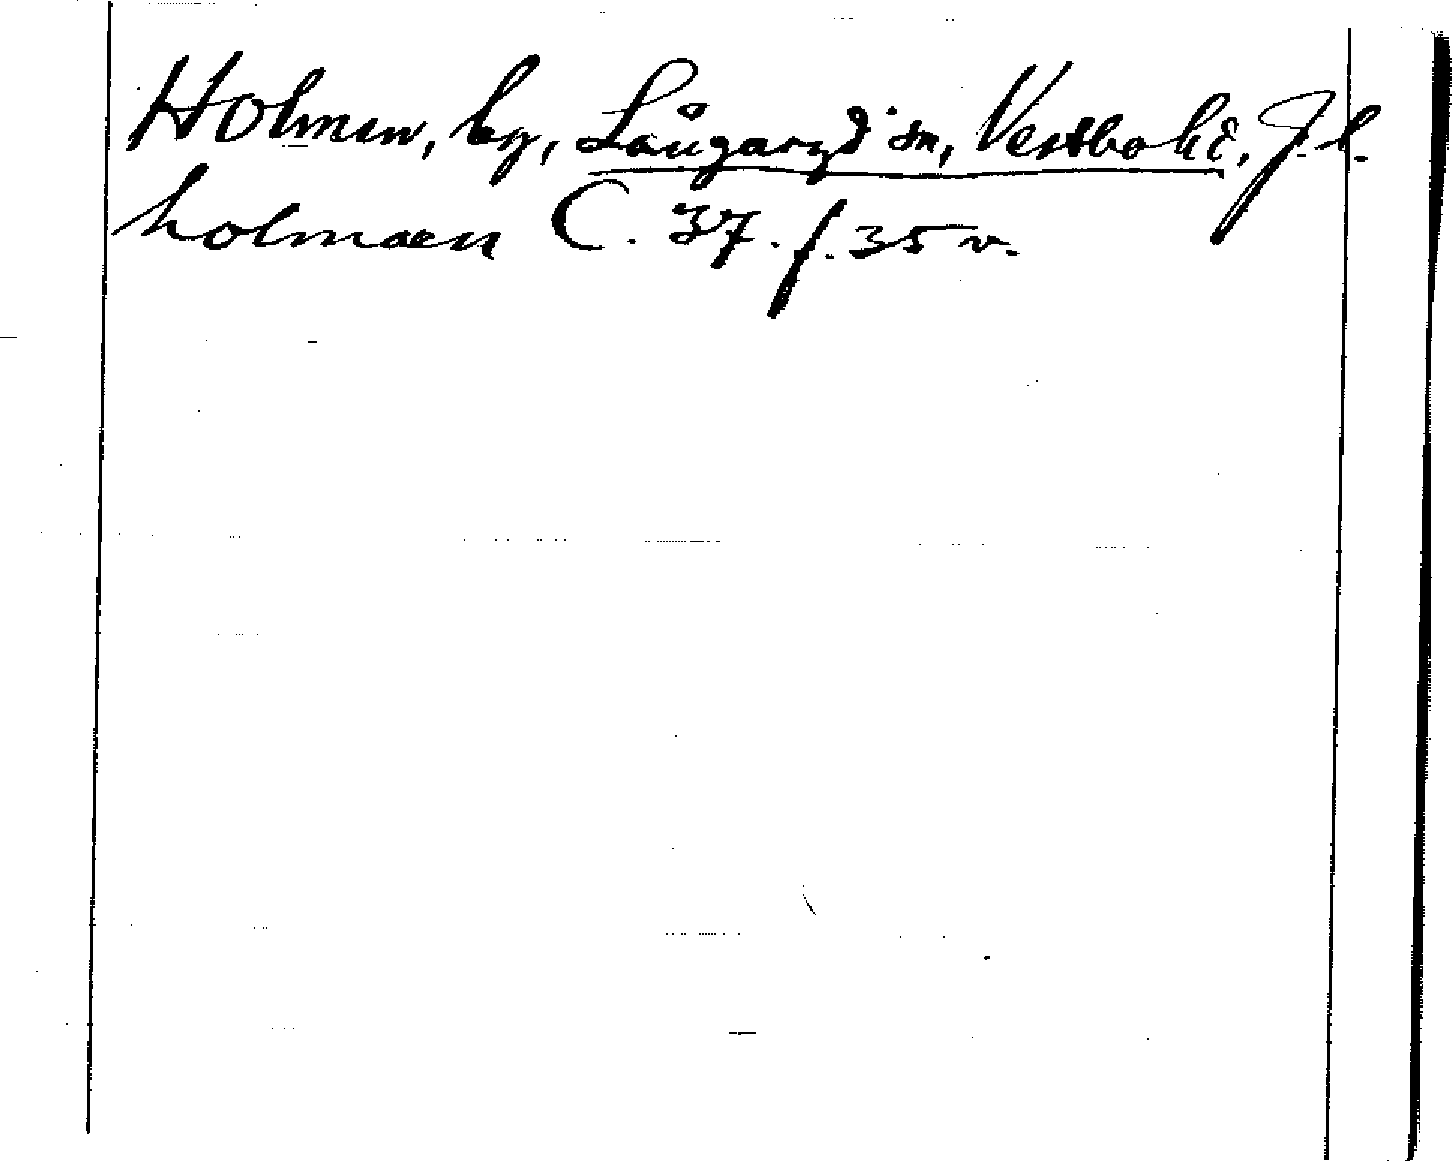 Holmen, by, Långaryd sn, Västbo hd, J. l.
holmaen C. 37. f. 35 v.